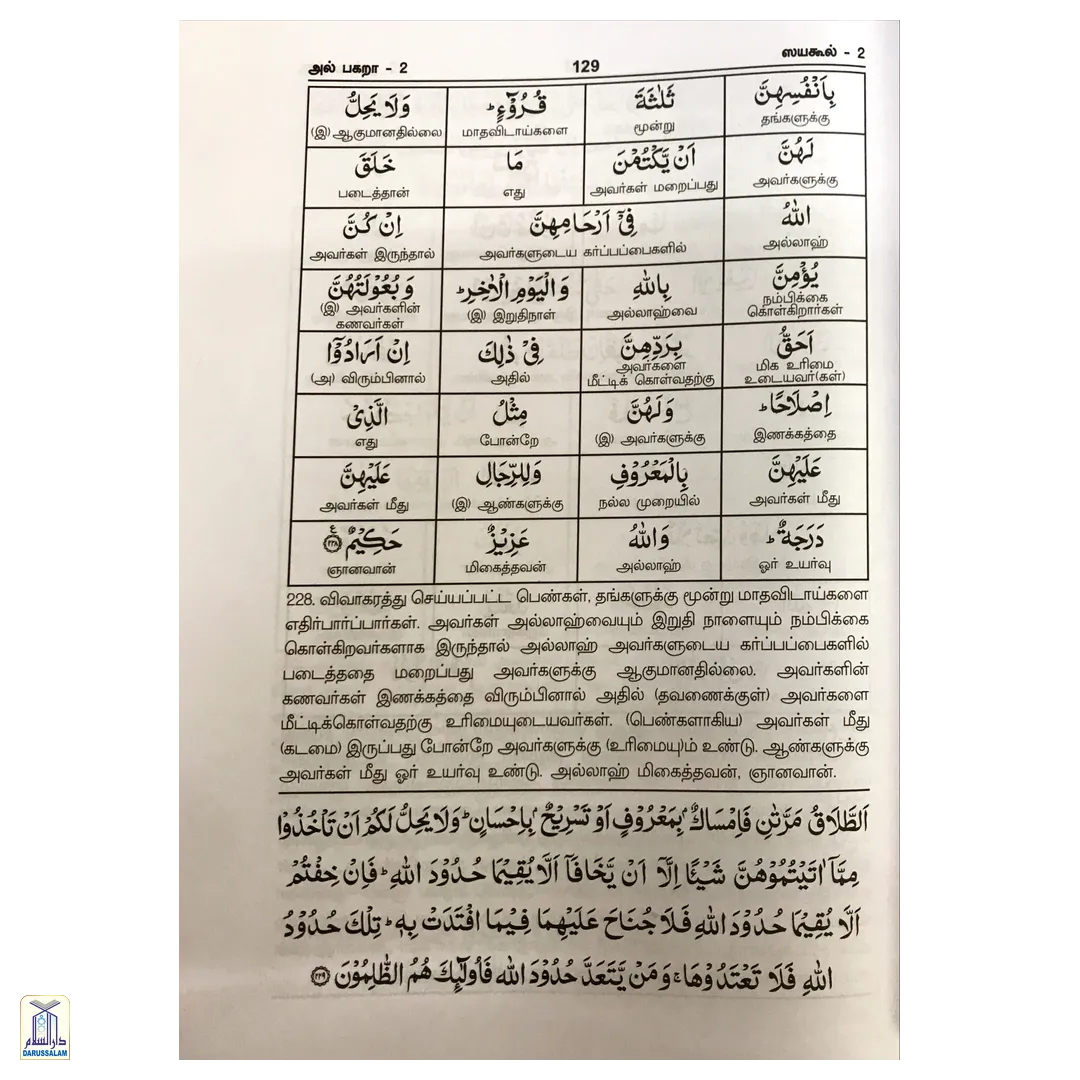 அல் பகறா - 2 129 ஸயகூல் - 2
بِاَنْفُسِهِنَّ ثَلٰثَةَ قُرُوْٓءٍ ؕ وَلَا يَحِلُّ
தங்களுக்கு மூன்று மாதவிடாய்களை (இ) ஆகுமானதில்லை
لَهُنَّ اَنْ يَّكْتُمْنَ مَا خَلَقَ
அவர்களுக்கு அவர்கள் மறைப்பது எது படைத்தான்
اللّٰهُ فِىْٓ اَرْحَامِهِنَّ اِنْ كُنَّ
அல்லாஹ் அவர்களுடைய கர்ப்பப்பைகளில் அவர்கள் இருந்தால்
يُؤْمِنَّ بِاللّٰهِ وَالْيَوْمِ الْاٰخِرِ ؕ وَبُعُوْلَتُهُنَّ
நம்பிக்கை கொள்கிறார்கள் அல்லாஹ்வை (இ) இறுதிநாள் (இ) அவர்களின் கணவர்கள்
اَحَقُّ بِرَدِّهِنَّ فِىْ ذٰلِكَ اِنْ اَرَادُوْٓا
மிக உரிமை உடையவர்(கள்) அவர்களை மீட்டிக் கொள்வதற்கு அதில் (அ) விரும்பினால்
اِصْلَاحًا ؕ وَلَهُنَّ مِثْلُ الَّذِىْ
இணக்கத்தை (இ) அவர்களுக்கு போன்றே எது
عَلَيْهِنَّ بِالْمَعْرُوْفِ وَلِلرِّجَالِ عَلَيْهِنَّ
அவர்கள் மீது நல்ல முறையில் (இ) ஆண்களுக்கு அவர்கள் மீது
دَرَجَةٌ ؕ وَاللّٰهُ عَزِيْزٌ حَكِيْمٌ ﴿۲۲۸﴾ ع
ஓர் உயர்வு அல்லாஹ் மிகைத்தவன் ஞானவான்
228. விவாகரத்து செய்யப்பட்ட பெண்கள், தங்களுக்கு மூன்று மாதவிடாய்களை
எதிர்பார்ப்பார்கள். அவர்கள் அல்லாஹ்வையும் இறுதி நாளையும் நம்பிக்கை
கொள்கிறவர்களாக இருந்தால் அல்லாஹ் அவர்களுடைய கர்ப்பப்பைகளில்
படைத்ததை மறைப்பது அவர்களுக்கு ஆகுமானதில்லை. அவர்களின்
கணவர்கள் இணக்கத்தை விரும்பினால் அதில் (தவணைக்குள்) அவர்களை
மீட்டிக்கொள்வதற்கு உரிமையுடையவர்கள். (பெண்களாகிய) அவர்கள் மீது
(கடமை) இருப்பது போன்றே அவர்களுக்கு (உரிமையு)ம் உண்டு. ஆண்களுக்கு
அவர்கள் மீது ஓர் உயர்வு உண்டு. அல்லாஹ் மிகைத்தவன், ஞானவான்.
اَلطَّلَاقُ مَرَّتٰنِ فَاِمْسَاكٌۢ بِمَعْرُوْفٍ اَوْ تَسْرِيْحٌۢ بِاِحْسَانٍ ؕ وَلَا يَحِلُّ لَكُمْ اَنْ تَاْخُذُوْا
مِمَّآ اٰتَيْتُمُوْهُنَّ شَيْئًا اِلَّآ اَنْ يَّخَافَآ اَلَّا يُقِيْمَا حُدُوْدَ اللّٰهِ ؕ فَاِنْ خِفْتُمْ
اَلَّا يُقِيْمَا حُدُوْدَ اللّٰهِ فَلَا جُنَاحَ عَلَيْهِمَا فِيْمَا افْتَدَتْ بِهٖ ؕ تِلْكَ حُدُوْدُ
اللّٰهِ فَلَا تَعْتَدُوْهَا ۚ وَمَنْ يَّتَعَدَّ حُدُوْدَ اللّٰهِ فَاُولٰٓئِكَ هُمُ الظّٰلِمُوْنَ ﴿۲۲۹﴾
دارالسلام
DARUSSALAM